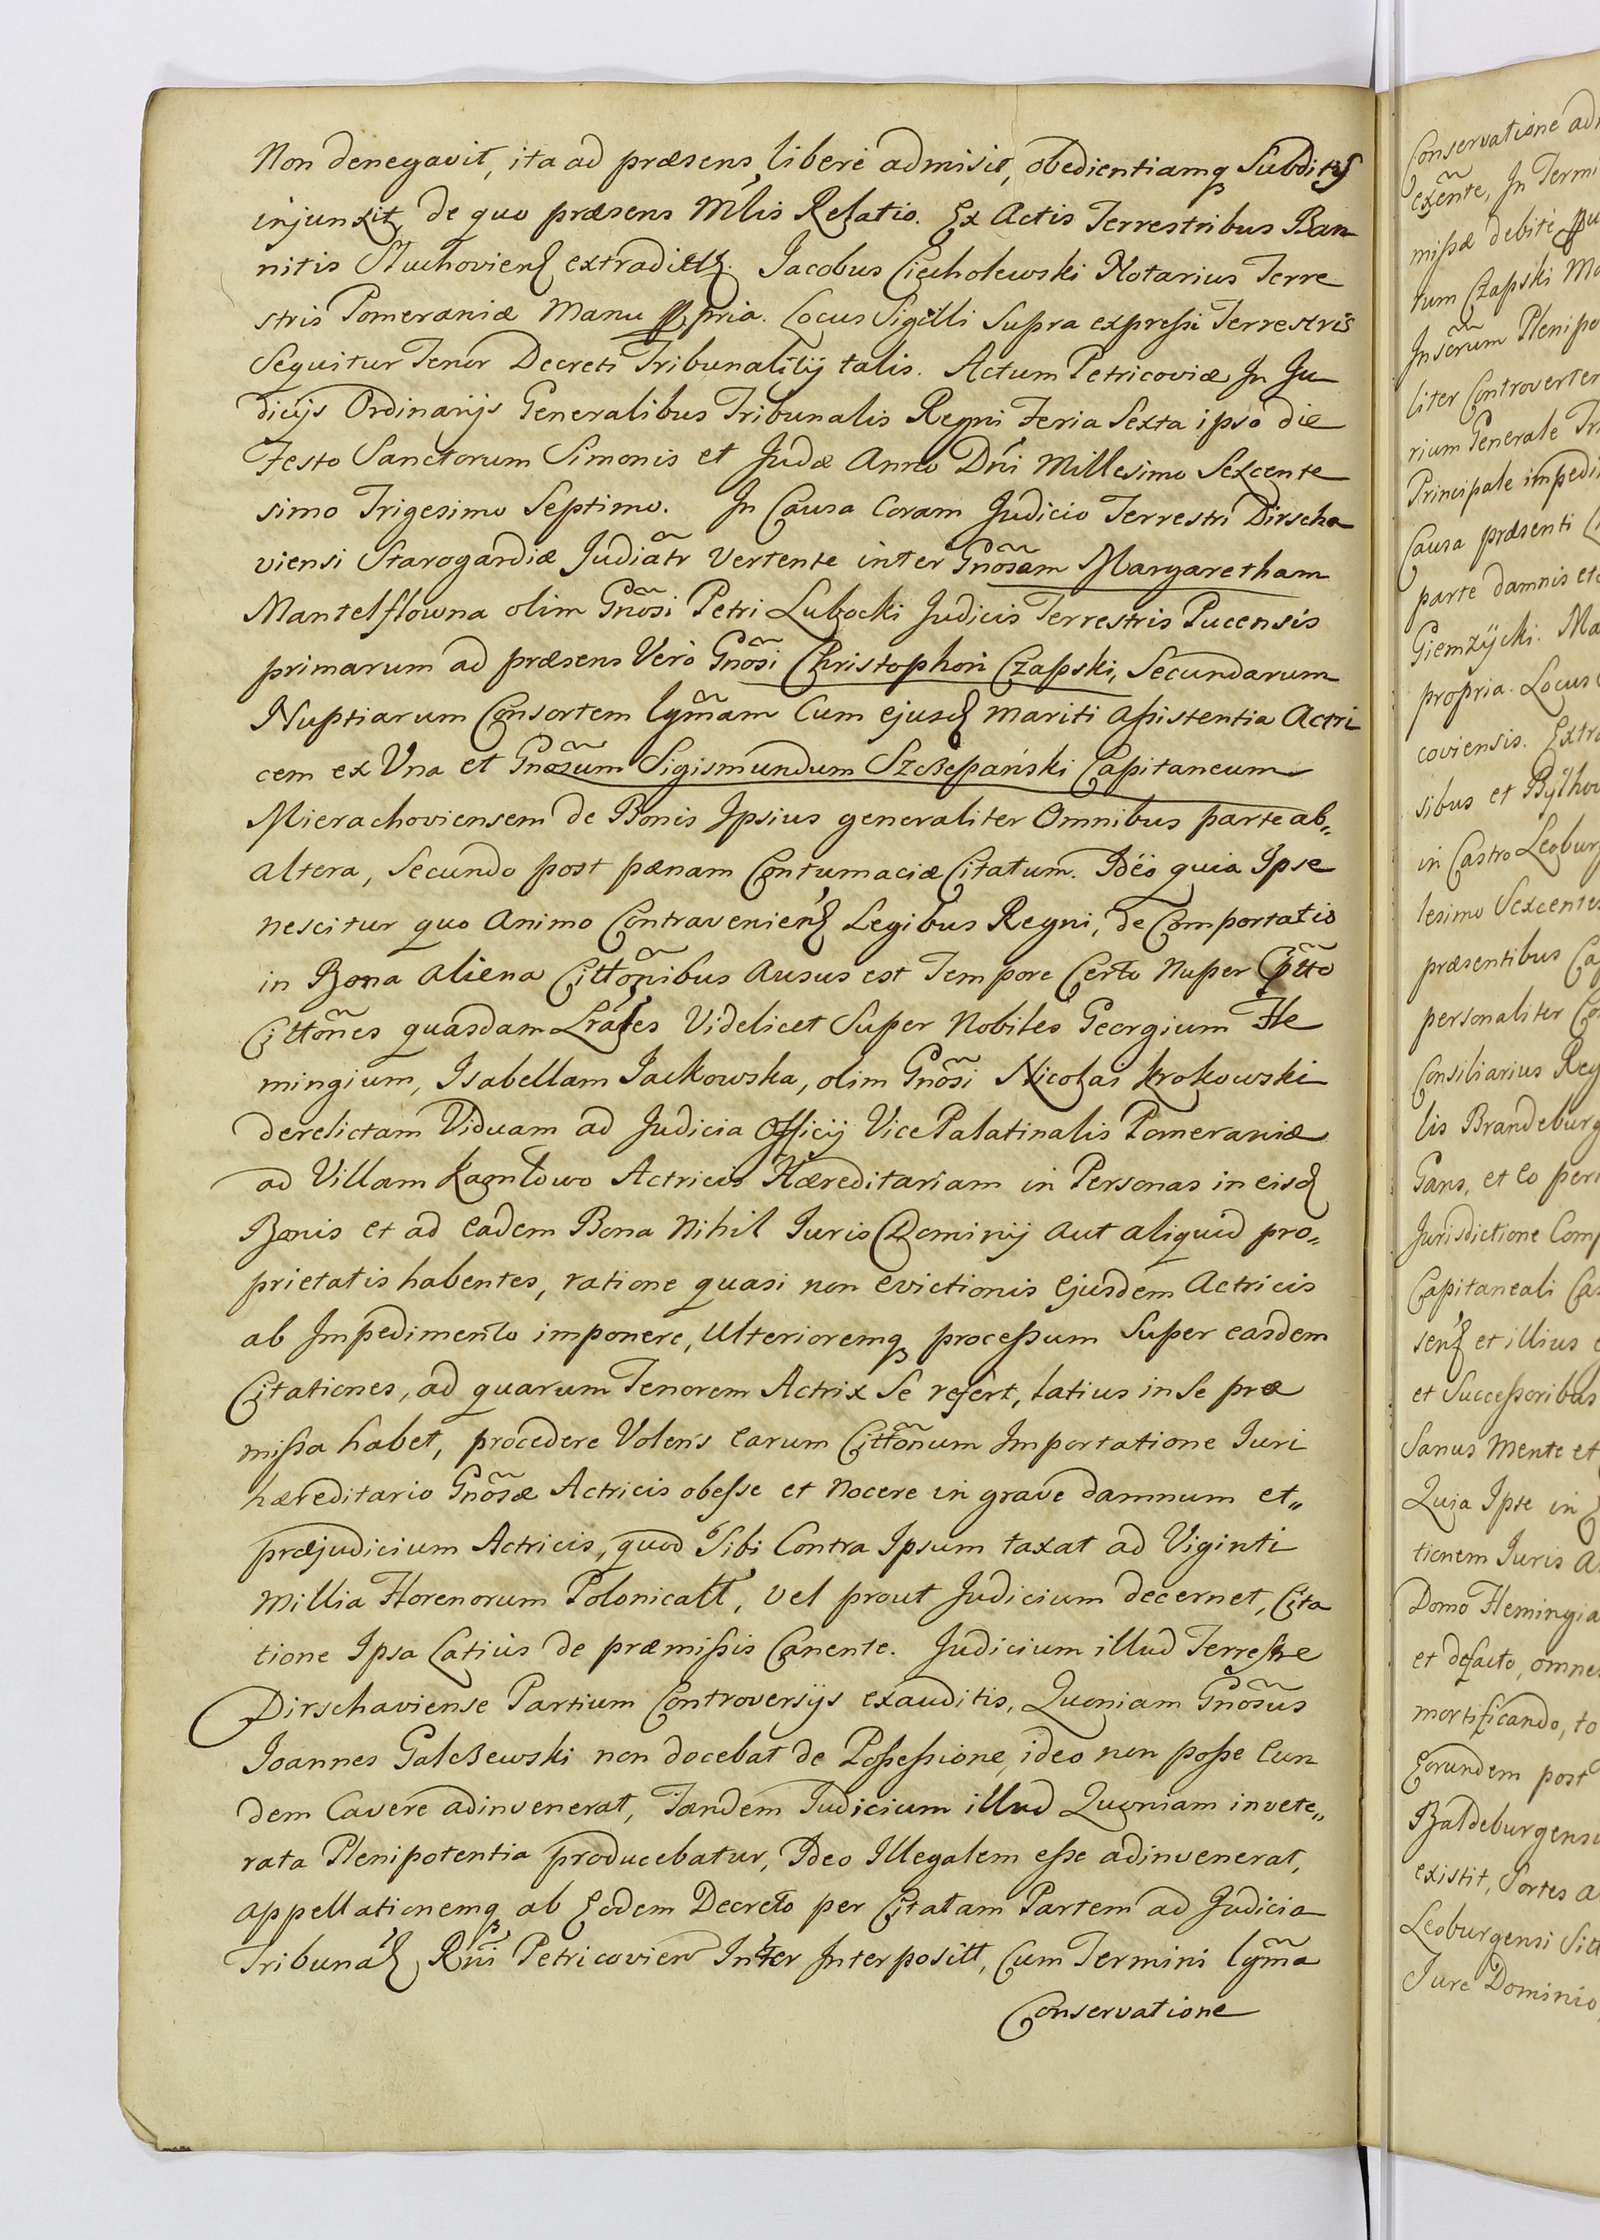 Non denegavit, ita ad præsens liberè admisit, obedientiamq Subditis
injunxit, de quo præsens Mlis Relatio. Ex Actis Terrestribus Ban
nitis Tuchovien extradit. Jacobus Ciecholewski Notarius Terre
stris Pomeraniæ Manu ppria. Locus Sigilli Supra expressi Terrestris
Sequitur Tenor Decreti Tribunalitij talis. Actum Petricoviæ In Ju
dicijs Ordinarijs Generalibus Tribunalis Regni Feria Sexta ipso die
Festo Sanctorum Simonis et Judæ Anno Dñi Millesimo Sexcente
simo Trigesimo Septimo. In Causa Coram Judicio Terrestri Dirscha
viensi Starogardiæ Judiãtr Vertente inter Gnõsam Margaretham
Mantelflowna olim Gnõsi Petri Lubocki Judicis Terrestris Pucensis
primarum ad præsens Verò Gnõsi Christophori Czapski, Secundarum
Nuptiarum Consortem lgm̃am Cum ejusd Mariti Assistentia Actri
cem ex Vna et Gnõsum Sigismundum Szczepański Capitaneum
Mierachoviensem de Bonis Ipsius generaliter Omnibus parte ab„
altera, Secundo post pænam Contumaciæ Citatum. Ideò quia Ipse
nescitur quo Animo Contravenien Legibus Regni, de Comportatio
in Bona aliena Cittõnibus Ausus est Tempore Certo Nuper
Cittõnes quasdam Videlicet Super Nobiles Georgium Fle
mingium, Isabellam Jackowska, olim Gnõsi Nicolai Krokowski
derelictam Viduam ad Judicia Officij VicePalatinalis Pomeraniæ
ad Villam Kamlowo Actricis Hæreditariam in Personas in eisd
Bonis et ad eadem Bona Nihil Juris Dominij aut aliquid pro„
prietatis habentes, ratione quasi non evictionis Ejusdem Actricis
ab Impedimento imponere, Ulterioremq processum Super easdem
Citationes, ad quarum Tenorem Actrix Se refert, latius in Se præ
missa habet, procedere Volens earum Cittõnum Importatione Juri
hæreditario Gnõsæ Actricis obesse et Nocere in grave damnum et„
præjudicium Actricis, quod Sibi Contra Ipsum taxat ad Viginti
Millia Florenorum Polonicall, vel prout Judicium decernet, Cita
tione Ipsa Latiùs de præmissis Canente. Judicium illud Terrestre
Dirschaviense Partium Controversijs exauditis, Quoniam Gnõsus
Joannes Galczewski non docebat de Possessione, ideo non posse Eun
dem Cavere adinvenerat, Tandem Judicium illud Quoniam invete„
rata Plenipotentia producebatur, Ideo Illegalem esse adinvenerat,
appellationemq ab Eodem Decreto per Citatam Partem ad Judicia
Tribunal Rñi Petricovien Inter Interposit, Cum Termini lgm̃a
Conservatione
Conservatione
exeñte, In Termi
missæ debitè
tum Czapski
Plenipo
liter Controverter
rium Generale
Principale impedi
Causa præsenti
parte damnis
Giemzÿcki.
propria. Locus
coviensis.
sibus et
in Castro
lesimo
præsentibus
personaliter
Consiliarius
lis Brandeburg
Gans, et eo
Jurisdictione
Capitaneali
et illius
et Successoribus
Sanus Mente et
Quia Ipse in
tionem Juris
Domo Flemingia
et defacto,
mortificando,
Eorundem post
existit, Sortes
Leoburgensi
Jure Dominio